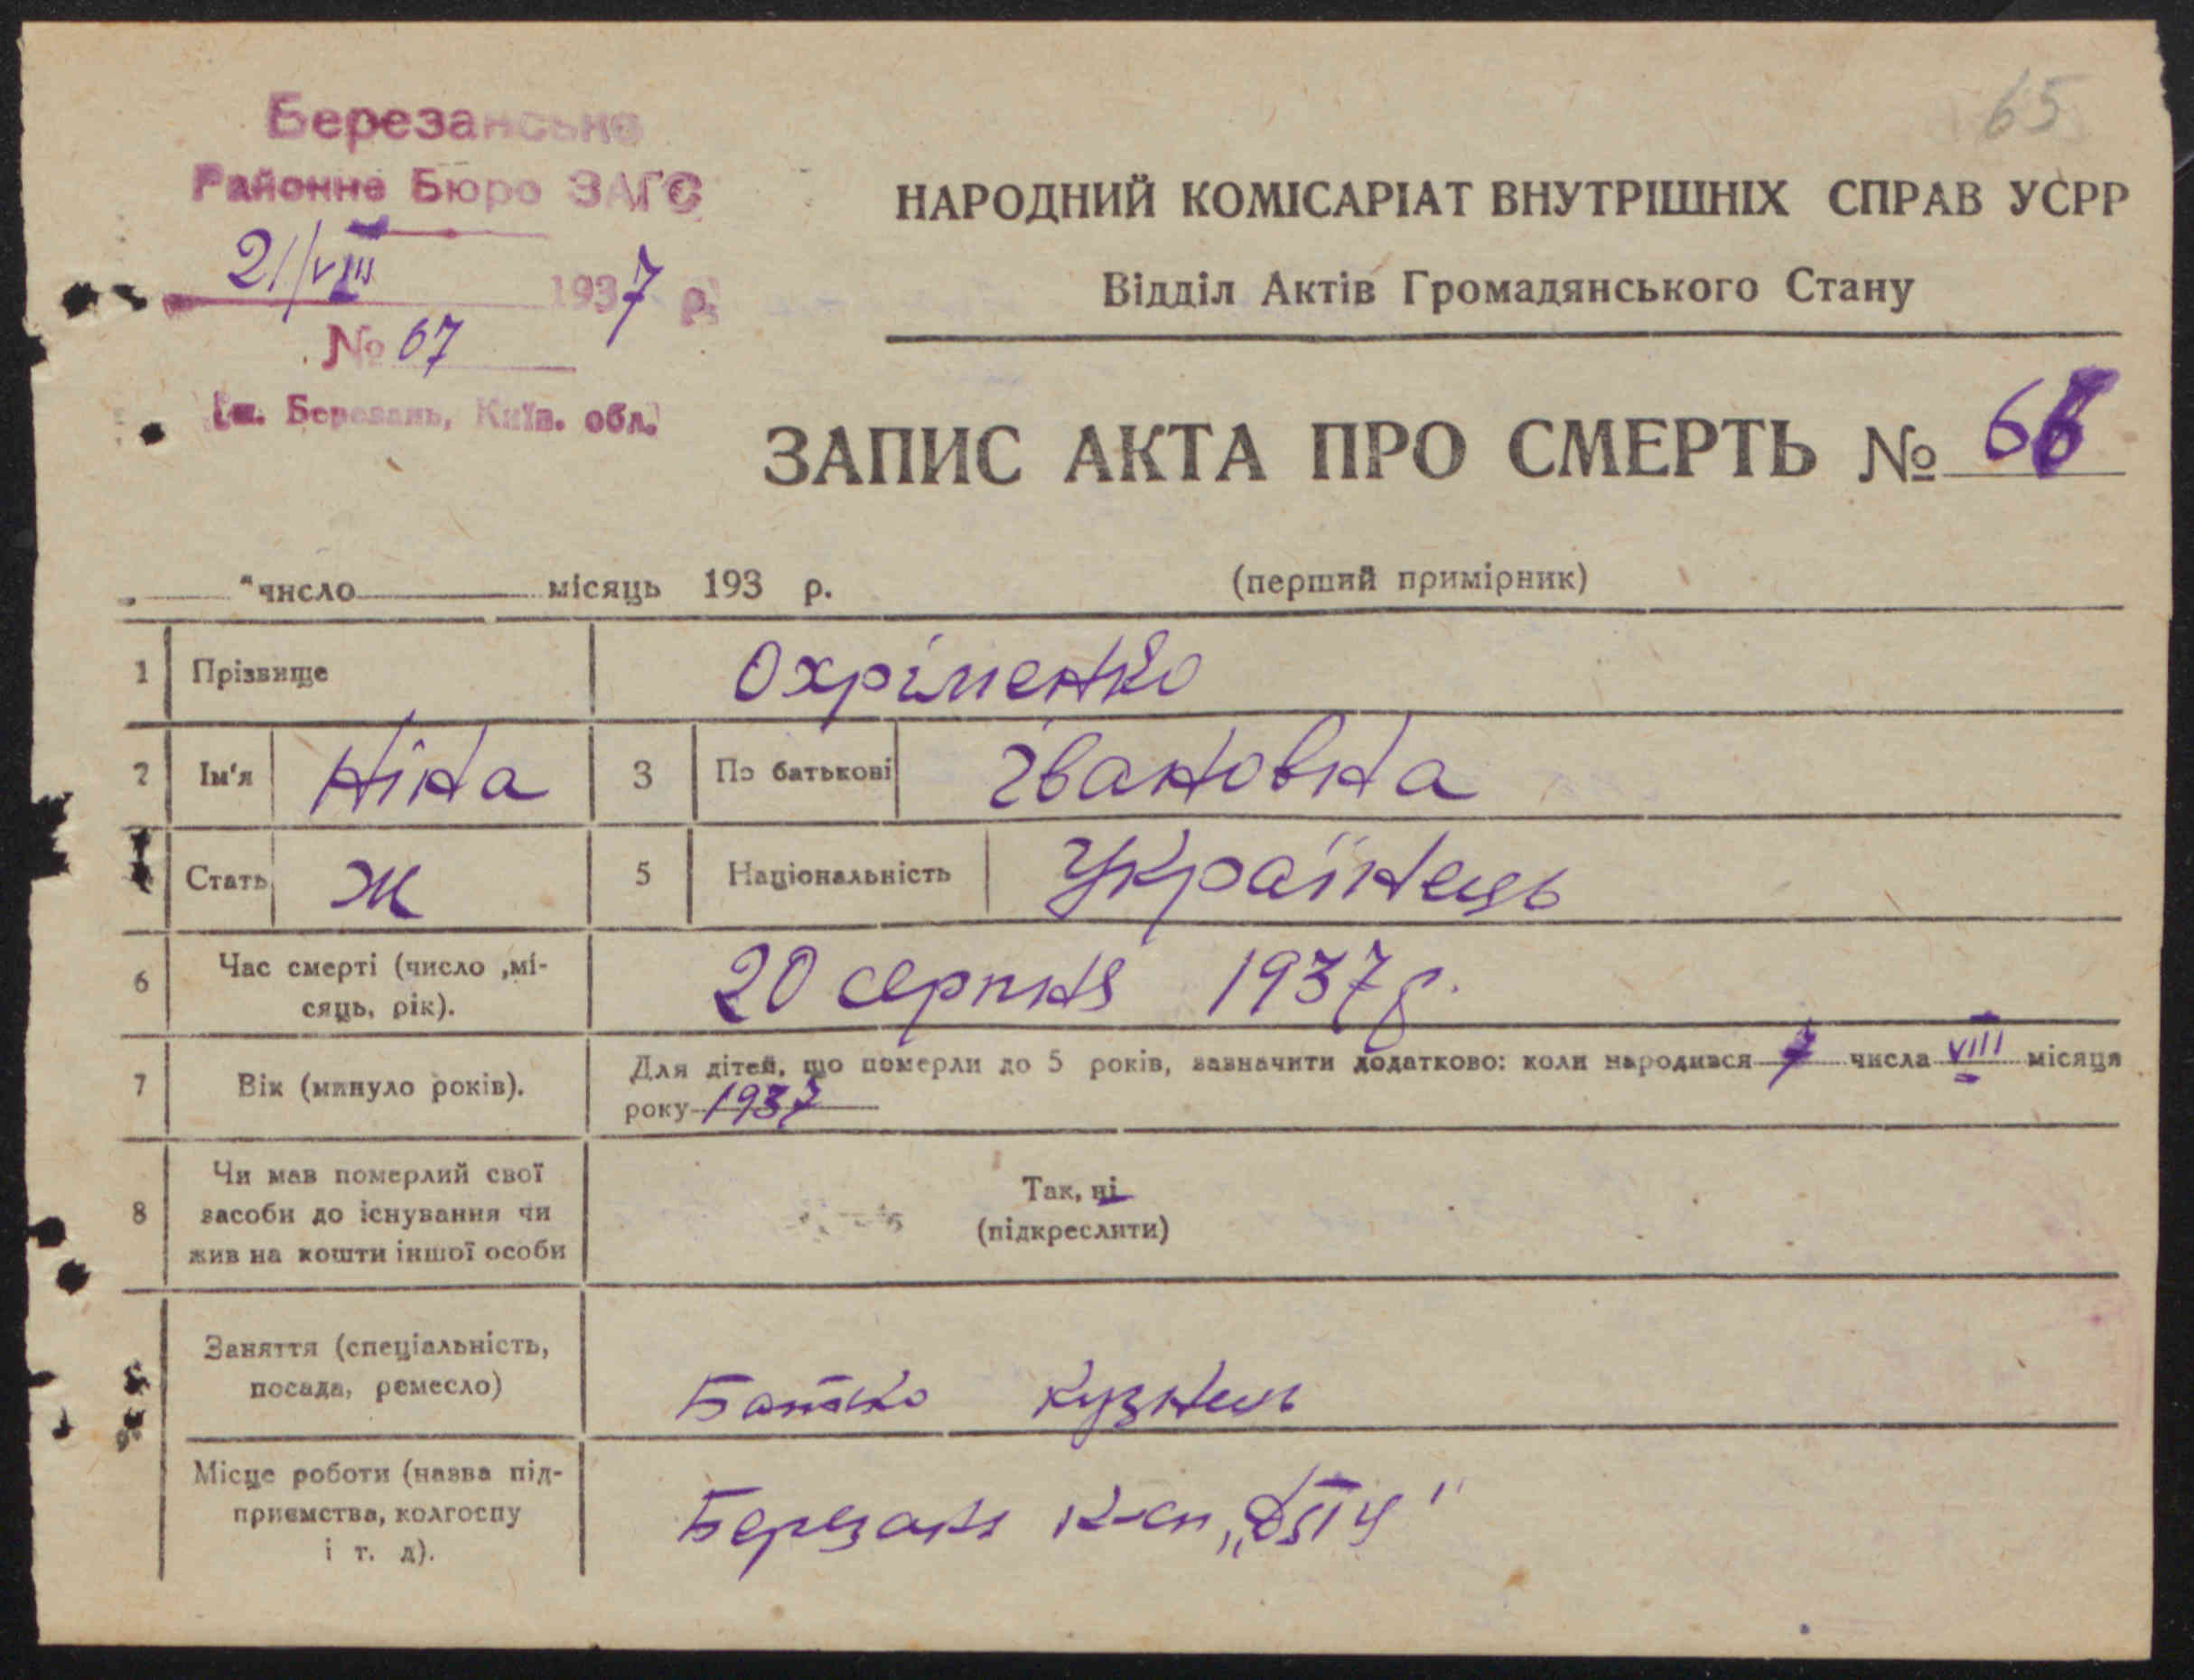 65
Березанське
Районне Бюро ЗАГС
21/VIII 1937 р.
№ 67
м. Березань, Київ. обл.
НАРОДНИЙ КОМІСАРІАТ ВНУТРІШНІХ СПРАВ УСРР
Відділ Актів Громадянського Стану
ЗАПИС АКТА ПРО СМЕРТЬ № 66
„ “ число місяць 193 р.
(перший примірник)
1 Прізвище Охріменко
2 Ім'я Ніна 3 По батькові Івановна
4 Стать Ж 5 Національність Українець
6 Час смерті (число ,мі-
сяць, рік). 20 серпня 1937 р.
7 Вік (минуло років). Для дітей, що померли до 5 років, зазначити додатково: коли народився 7 числа VIII місяця
року 1937
8 Чи мав померлий свої
засоби до існування чи
жив на кошти іншої особи
Так, ні
(підкреслити)
Заняття (спеціальність,
посада, ремесло) Батько кузнець
Місце роботи (назва під-
приємства, колгоспу
і т. д). Березань к-сп